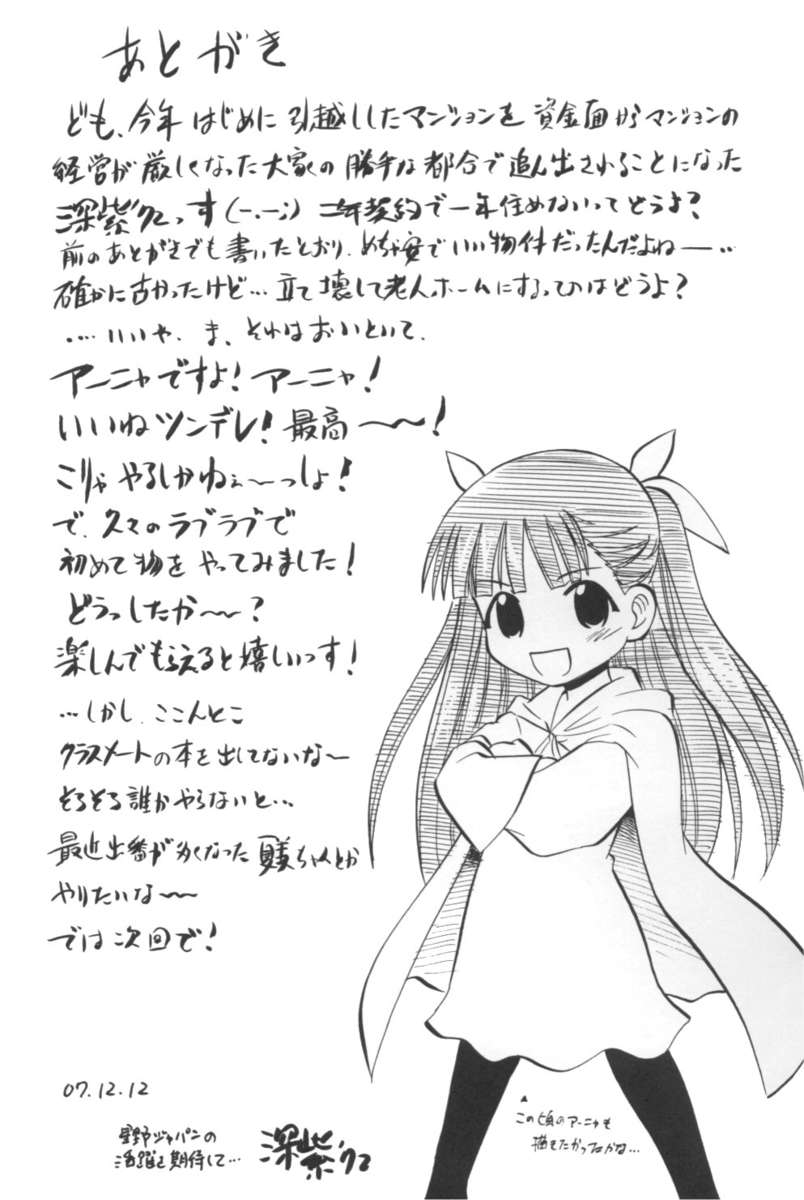 あとがき
ども、今年はじめに引越ししたマンションを資金面からマンションの
経営が厳しくなった大家の勝手な都合で追ん出されることになった
深紫クロっす(-.-;) 二年契約で一年住めないってどうよ?
前のあとがきでも書いたとおり、めちゃ安でいい物件だったんだよねー‥
確かに古かったけど…立て壊して老人ホームにするってのはどうよ?
‥‥いいや、ま、それはおいといて、
アーニャですよ!アーニャ!
いいねツンデレ!最高〜〜!
こりゃやるしかねぇ〜っしょ!
で、久々のラブラブで
初めて物をやってみました!
どうっしたか〜〜?
楽しんでもらえると嬉しいっす!
…しかし、ここんとこ
クラスメートの本を出してないな〜
そろそろ誰かやらないと…
最近出番が多くなった 夏美ちゃんとか
やりたいな〜〜
では次回で!
07.12.12
星野ジャパンの
活躍を期待して…
深紫クロ
この頃のアーニャも
描きたかったかな…